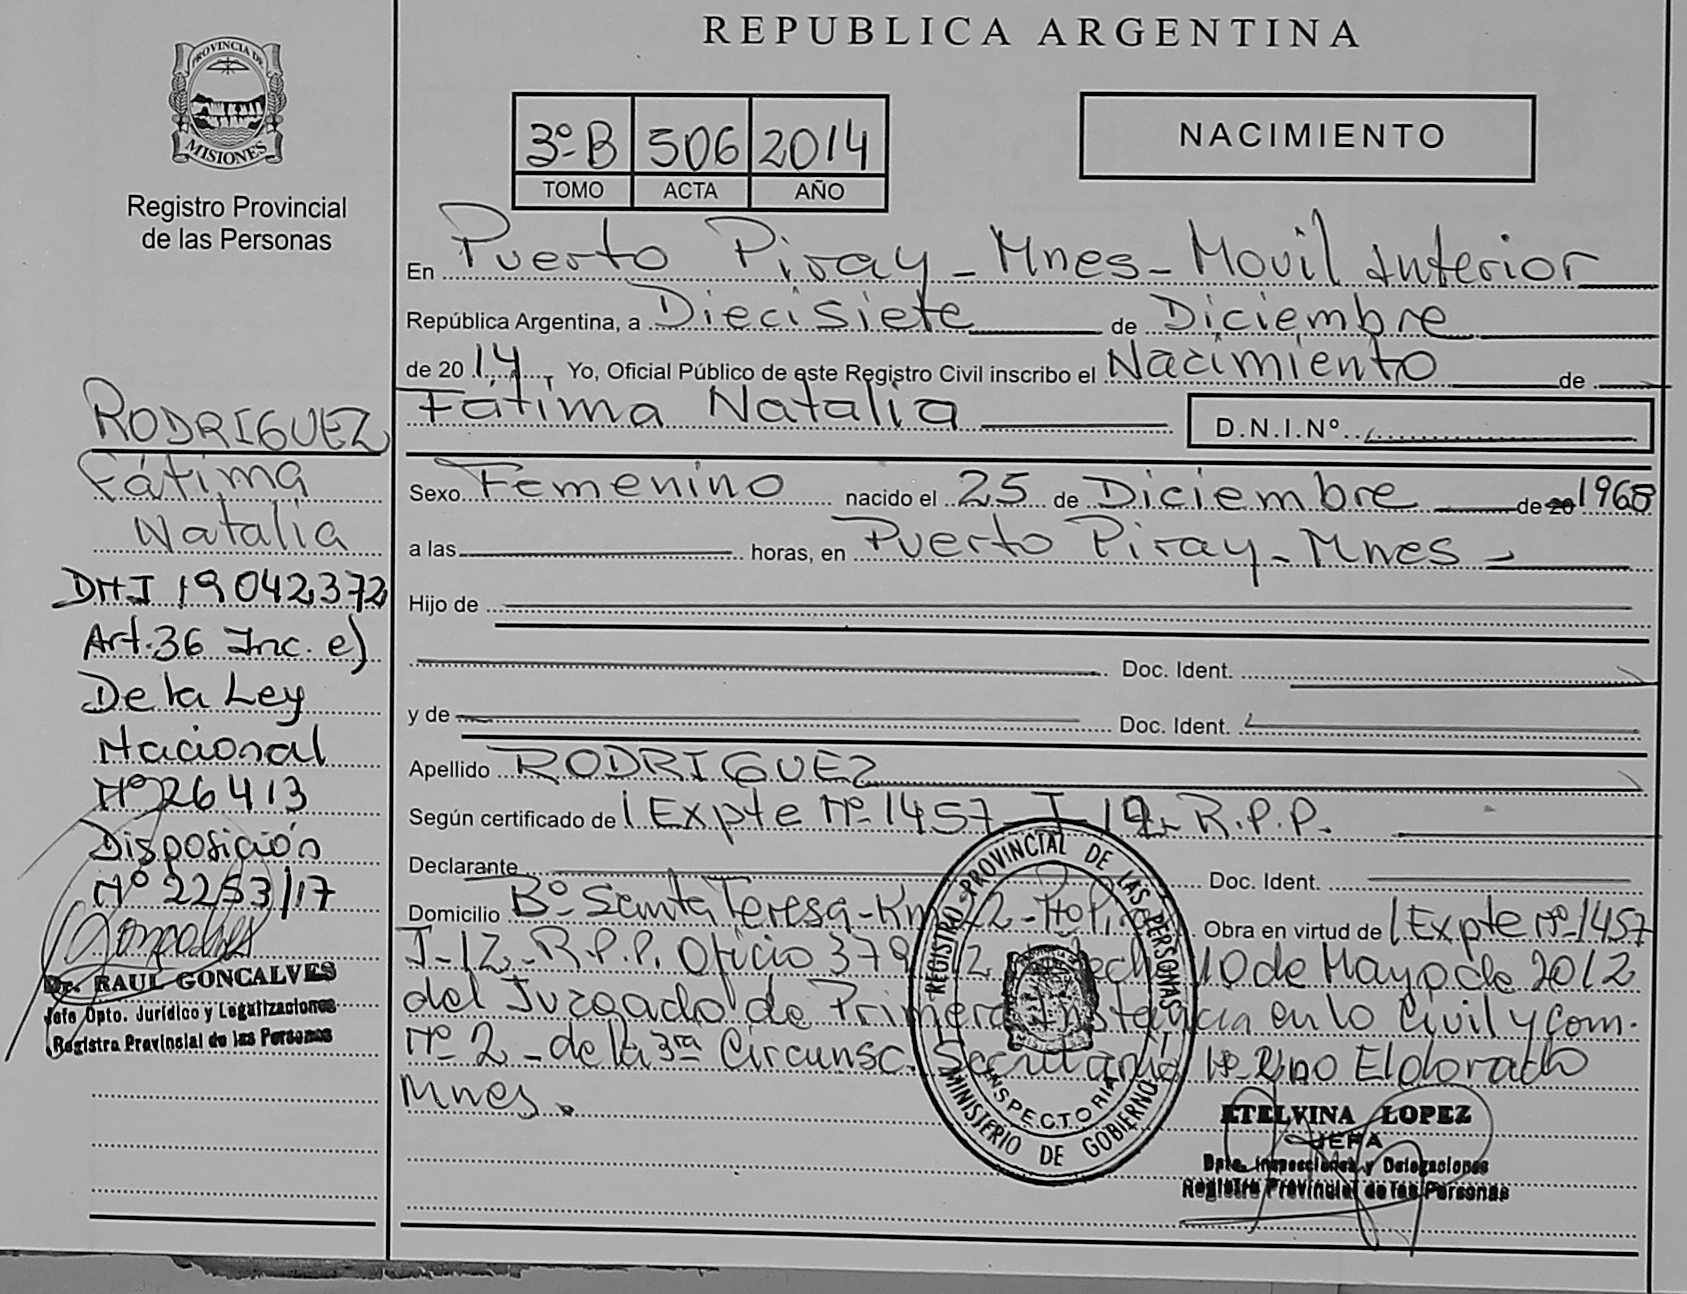 REPUBLICA ARGENTINA
PROVINCIA DE
MISIONES
Registro Provincial
de las Personas
3º B 506 2014
TOMO ACTA AÑO
NACIMIENTO
En Puerto Piray - Mnes - Movil Interior
República Argentina, a Diecisiete de Diciembre
de 2014, Yo, Oficial Público de este Registro Civil inscribo el Nacimiento de
Fátima Natalia D.N.I.Nº
Sexo Femenino nacido el 25 de Diciembre de 20 1968
a las horas, en Puerto Piray - Mnes -
Hijo de
Doc. Ident.
y de Doc. Ident.
Apellido RODRIGUEZ
Según certificado de Expte Nº 1457 - J - 12 - R.P.P.
Declarante Doc. Ident.
Domicilio Bº Santa Teresa - Km 2 - Obra en virtud de Expte Nº 1457
J-12 - R.P.P. Oficio 379 10 de Mayo de 2012
del Juzgado de Primera Instancia en lo Civil y Com.
Nº 2 - de la 3ra Circunsc. Secretaria Eldorado
Mnes.
RODRIGUEZ
Fátima
Natalia
DNI 19042372
Art. 36 Inc. e)
De la Ley
Nacional
Nº 26413
Disposición
Nº 2253/17
Dr. RAUL GONCALVES
Jefe Dpto. Jurídico y Legalizaciones
Registro Provincial de las Personas
REGISTRO PROVINCIAL DE LAS PERSONAS
INSPECTORIA
MINISTERIO DE GOBIERNO
ETELVINA LOPEZ
JEFA
Dpto. Inspecciones y Delegaciones
Registro Provincial de las Personas